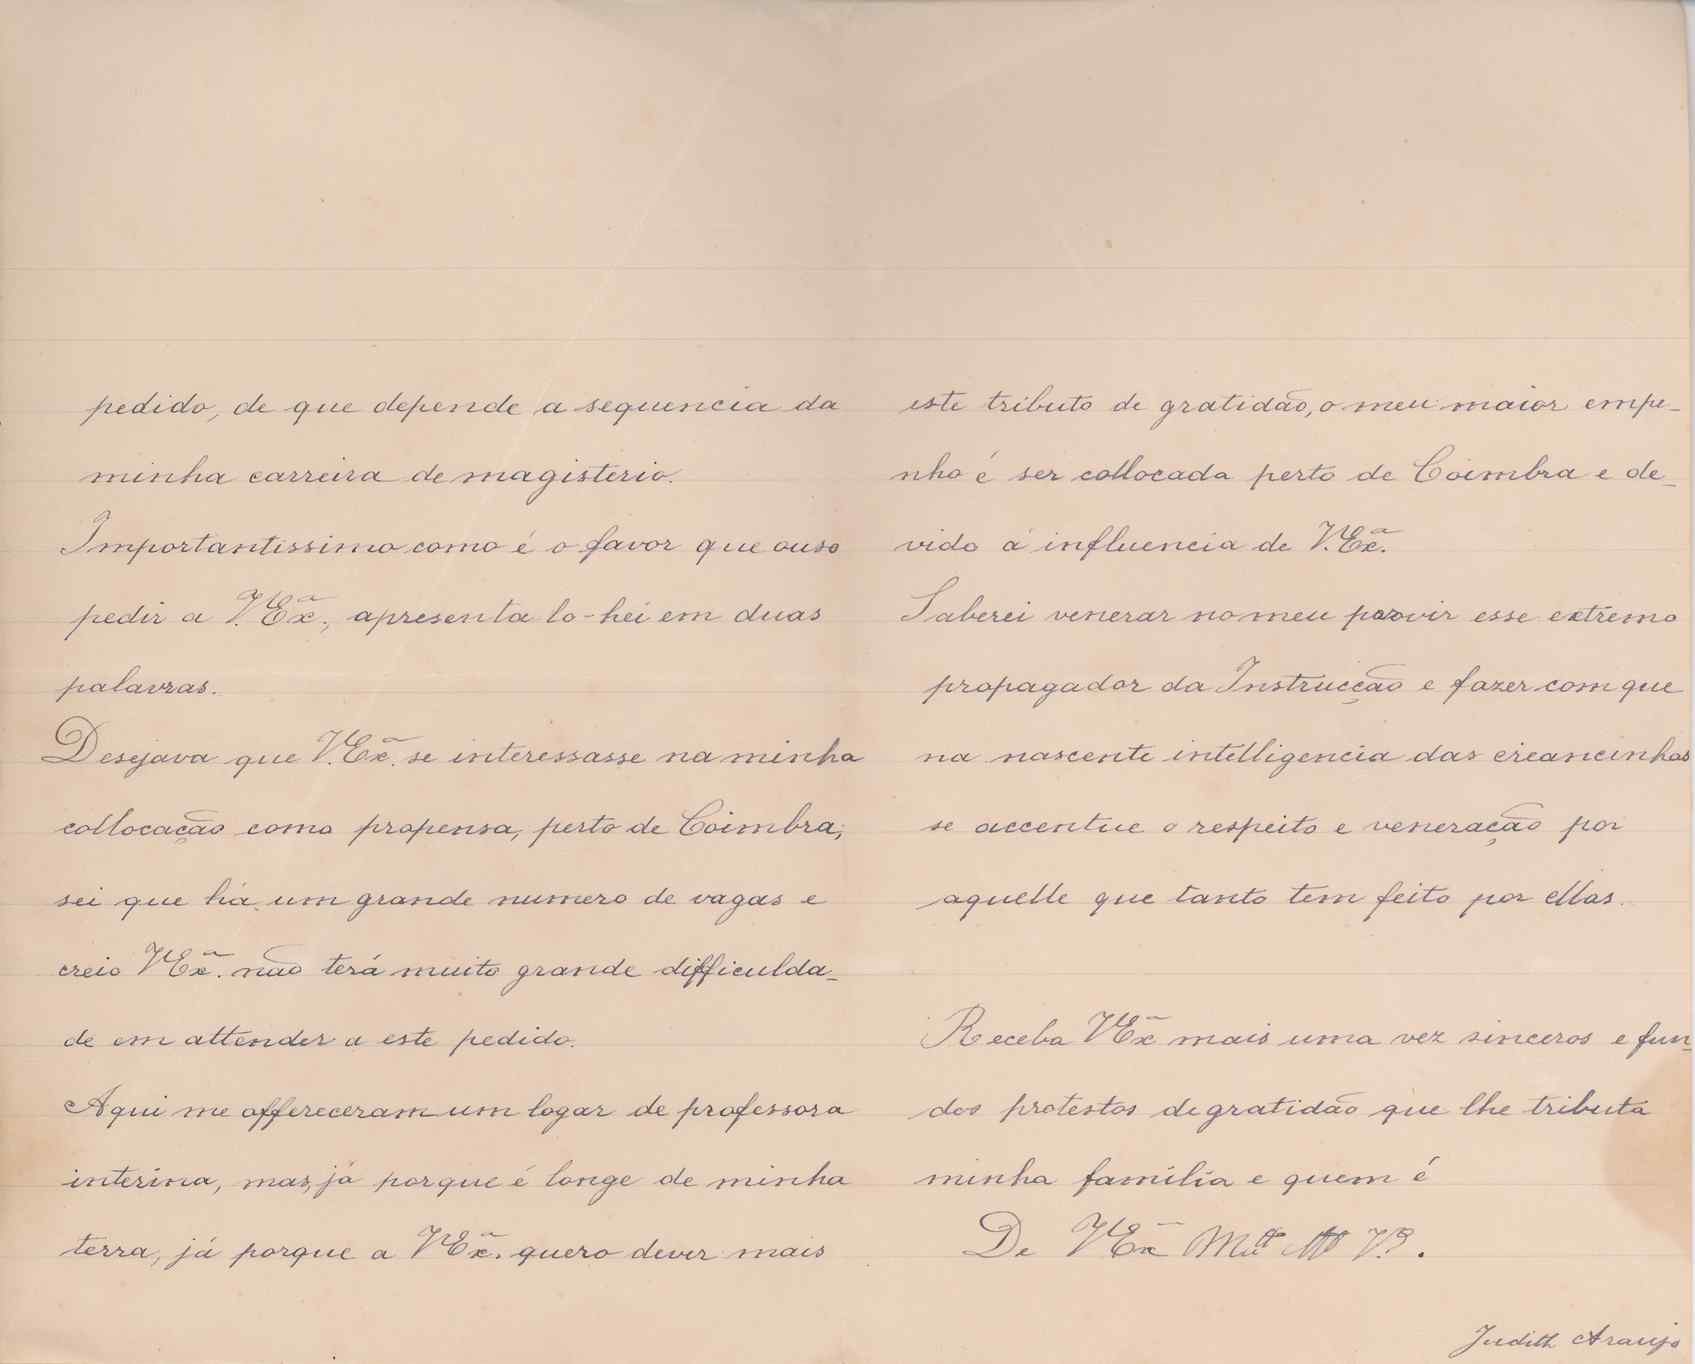 pedido, de que depende a sequencia da
minha carreira de magisterio.
Importantissimo como é o favor que ouso
pedir a V. Exª., apresenta lo-hei em duas
palavras.
Desejava que V. Exª. se interessasse na minha
collocação como propensa, perto de Coimbra;
sei que há um grande numero de vagas e
creio V Exª. não terá muito grande difficulda-
de em attender a este pedido.
Aqui me offereceram um logar de professora
interina, mas, já porque é longe de minha
terra, já porque a V Exª. quero dever mais
este tributo de gratidão, o meu maior empe-
nho é ser collocada perto de Coimbra e de-
vido á influencia de V. Exª.
Saberei venerar no meu porvir esse extremo
propagador da Instrucção e fazer com que
na nascente intelligencia das creancinhas
se accentue o respeito e veneração por
aquelle que tanto tem feito por ellas.
Receba V Exª mais uma vez sinceros e fun-
dos protestos de gratidão que lhe tributa
minha família e quem é
De V Exª Mtª Attª V.ª.
Judith Araujo